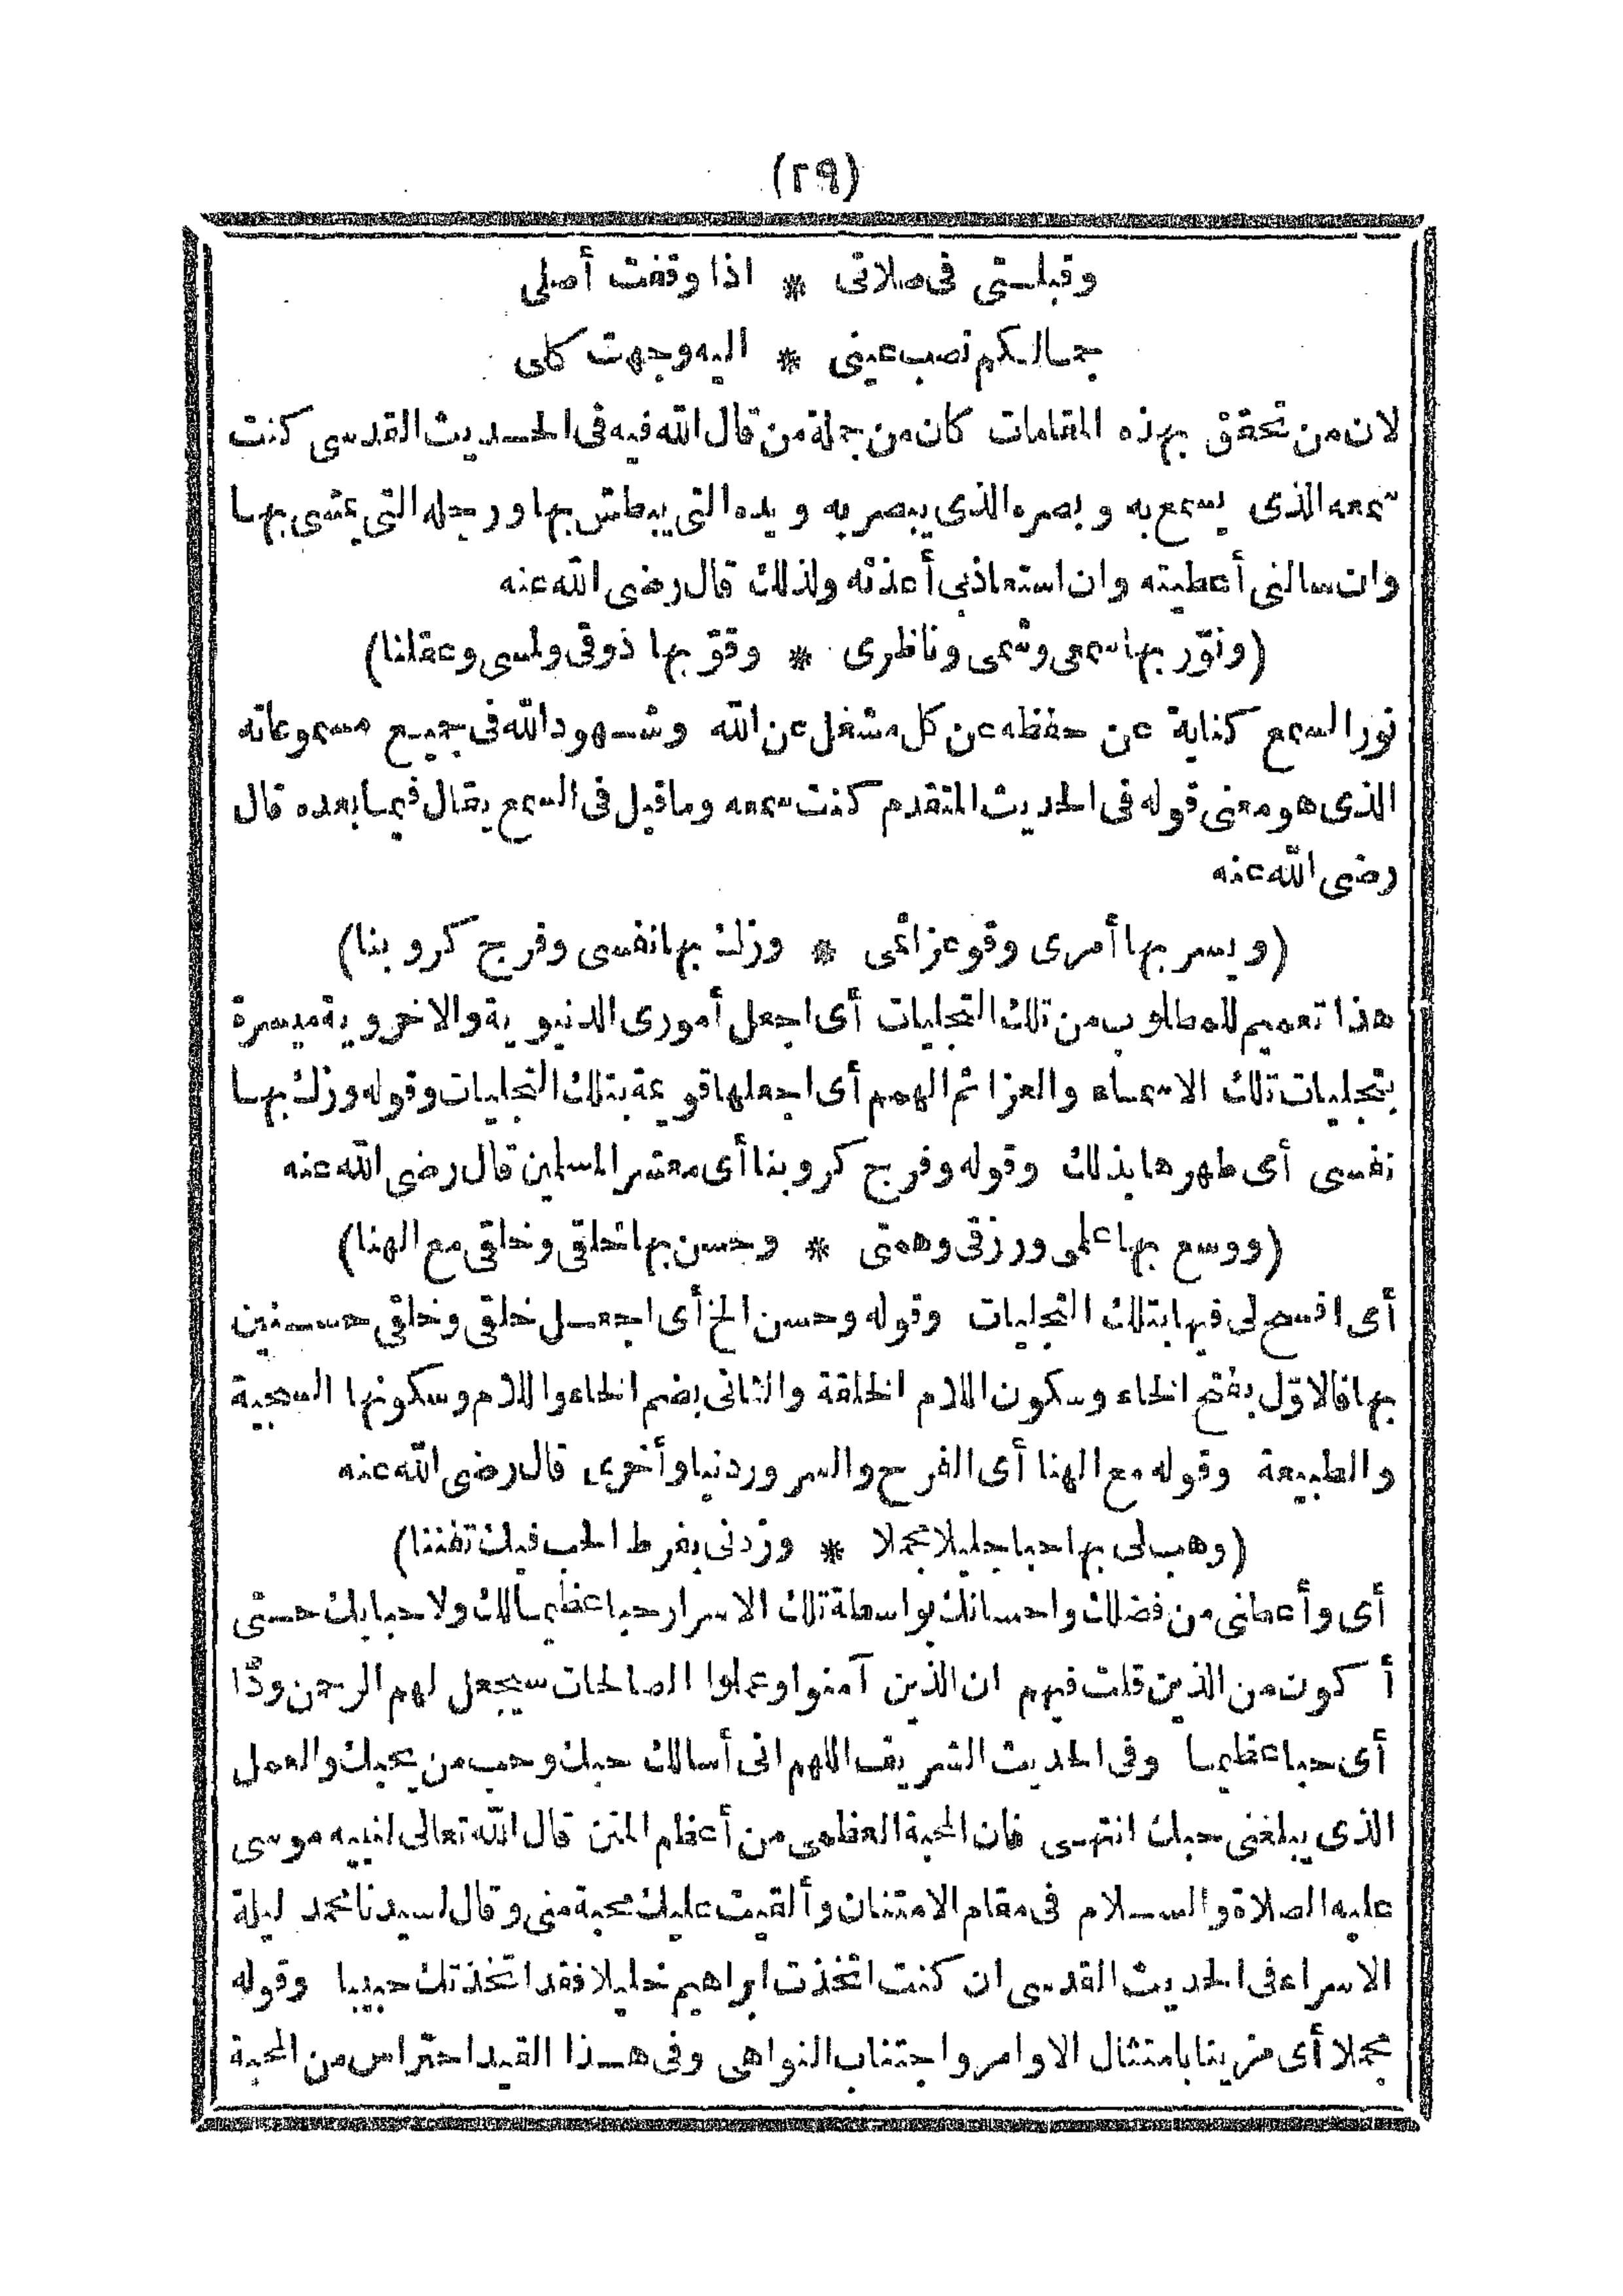 (٢٩)
وقبلتى فى صلاتى * اذا وقفت أصلى
جمالكم نصب عينى * اليه وجهت كلى
لان من تحقق بهذه المقامات كان من جملة من قال الله فيه فى الحديث القدسى كنت
سمعه الذى يسمع به وبصره الذى يبصر به ويده التى يبطش بها ورجله التى يمشى بها
وان سالنى أعطيته وان استعاذنى أعذته ولذلك قال رضى الله عنه
(ونوّر بها سمعى وشمى وناظرى * وقوّ بها ذوقى ولمسى وعقلنا)
نور السمع كناية عن حفظه عن كل مشغل عن الله وشهود الله فى جميع مسموعاته
الذى هو معنى قوله فى الحديث المتقدم كنت سمعه وما قيل فى السمع يقال فيما بعده قال
رضى الله عنه
(ويسر بها أمرى وقو عزائمى * وزك بها نفسى وفرج كروبنا)
هذا تعميم للمطلوب من تلك التجليات أى اجعل أمورى الدنيوية والاخروية ميسرة
بتجليات تلك الاسماء والعزائم الهمم أى اجعلها قوية بتلك التجليات وقوله وزك بها
نفسى أى طهرها بذلك وقوله وفرج كروبنا أى معشر المسلمين قال رضى الله عنه
(ووسع بها علمى ورزقى وهمتى * وحسن بها خلقى وخلقى مع الهنا)
أى افسح لى فيها بتلك التجليات وقوله وحسن الخ أى اجعل خلقى وخلقى حسنين
بها فالاوّل بفتح الخاء وسكون اللام الخلقة والثانى بضم الخاء واللام وسكونها السجية
والطبيعة وقوله مع الهنا أى الفرح والسرور دنيا وأخرى قال رضى الله عنه
(وهب لى بها حبا جليلا مجملا * وزدنى بفرط الحب فيك تفننا)
أى وأعطنى من فضلك واحسانك بواسطة تلك الاسرار حبا عظيما لك ولاحبابك حتى
أكون من الذين قلت فيهم ان الذين آمنوا وعملوا الصالحات سيجعل لهم الرحمن ودّا
أى حبا عظيما وفى الحديث الشريف اللهم انى أسالك حبك وحب من يحبك والعمل
الذى يبلغنى حبك انتهى فان المحبة العظمى من أعظم المنن قال الله تعالى لنبيه موسى
عليه الصلاة والسلام فى مقام الامتنان وألقيت عليك محبة منى وقال لسيدنا محمد ليلة
الاسراء فى الحديث القدسى ان كنت اتخذت ابراهيم خليلا فقد اتخذتك حبيبا وقوله
مجملا أى مزينا بامتثال الاوامر واجتناب النواهى وفى هذا القيد احتراس من المحبة